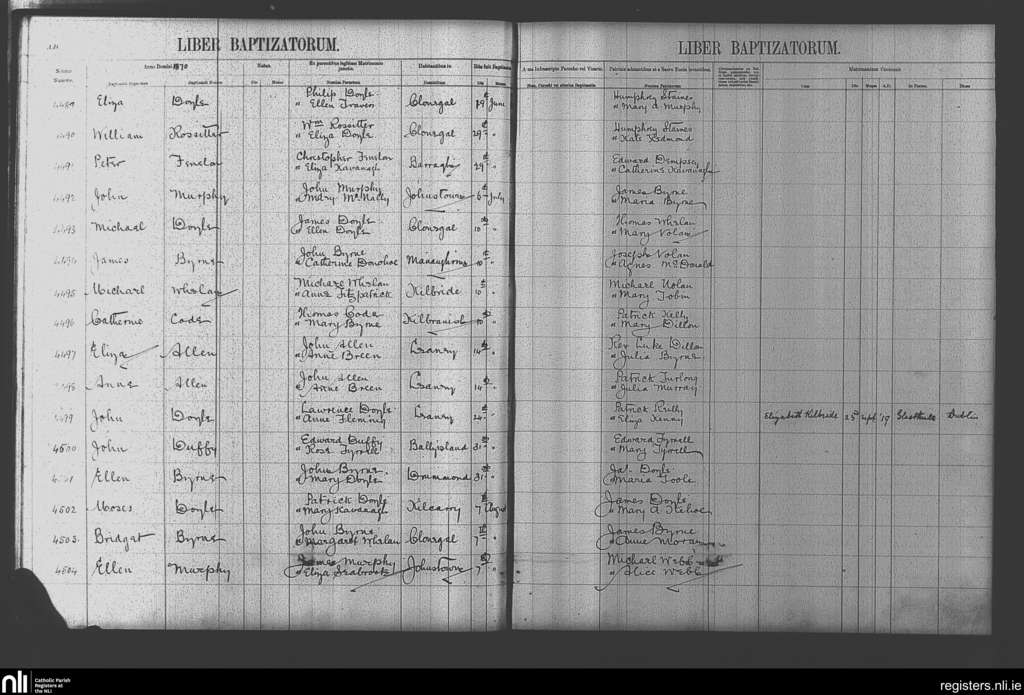 LIBER BAPTIZATORUM.
LIBER BAPTIZATORUM.
A.D.
Anno Domini 1870
Ex parentibus legitimo Matrimonio junctis.
Habitantibus in
Die fuit Baptizatus
A me Infrascripto Parocho vel Vicario.
Patrinis adstantibus et a Sacro Fonte levantibus.
Matrimonium Contraxit
Natus.
Die
Mense
Nomina Parentum
Domicilium
Die
Mense
Nomina Patrinorum
Cum
Die
Mense
A.D.
4489 Eliza Doyle Philip Doyle Clonegal 19 June Humphrey Staines
" Ellen Traven " Mary A Murphy
4490 William Rossitter Wm Rossitter Clonegal 29 " Humphrey Staines
" Eliza Doyle " Kate Redmond
4491 Peter Fenelon Christopher Fenelon Barragh 29 " Edward Dempsey
" Eliza Kavanagh " Catherine Kavanagh
4492 John Murphy John Murphy Johnstown 6 July James Byrne
" Mary McNally " Maria Byrne
4493 Michael Doyle James Doyle Clonegal 10 " Thomas Whelan
" Ellen Doyle " Mary Nolan
4494 James Byrne John Byrne 10 " Joseph Nolan
" Catherine Donohoe " Agnes McDonald
4495 Michael Whelan Michael Whelan Kilbride 10 " Michael Nolan
" Anne Fitzpatrick " Mary Tobin
4496 Catherine Code Thomas Code Kilbranish 10 " Patrick Kelly
" Mary Byrne " Mary Dillon
4497 Eliza Allen John Allen Cranry 14 " Rev Luke Dillon
" Anne Breen " Julia Byrne
4498 Anne Allen John Allen Cranry 14 " Patrick Furlong
" Anne Breen " Julia Murray
4499 John Doyle Lawrence Doyle Cranry 24 " Patrick Reilly Elizabeth Kilbride 25 Sept 19 Glasthule Dublin
" Anne Fleming " Eliza Kenny
4500 John Duffy Edward Duffy Ballyisland 31 " Edward Tyrrell
" Rose Tyrrell " Mary Tyrrell
4501 Ellen Byrne John Byrne Drummond 31 " Jas. Doyle
" Mary Doyle " Maria Toole
4502 Moses Doyle Patrick Doyle Kilcarry 7 August James Doyle
" Mary Kavanagh " Mary A Kehoe
4503 Bridget Byrne John Byrne Clonegal 7 " James Byrne
" Margaret Whelan " Anne Moran
4504 Ellen Murphy James Murphy Johnstown 7 " Michael Webb
" Eliza Seabrook " Alice Webb
nli
Catholic Parish
Registers at
the NLI
registers.nli.ie